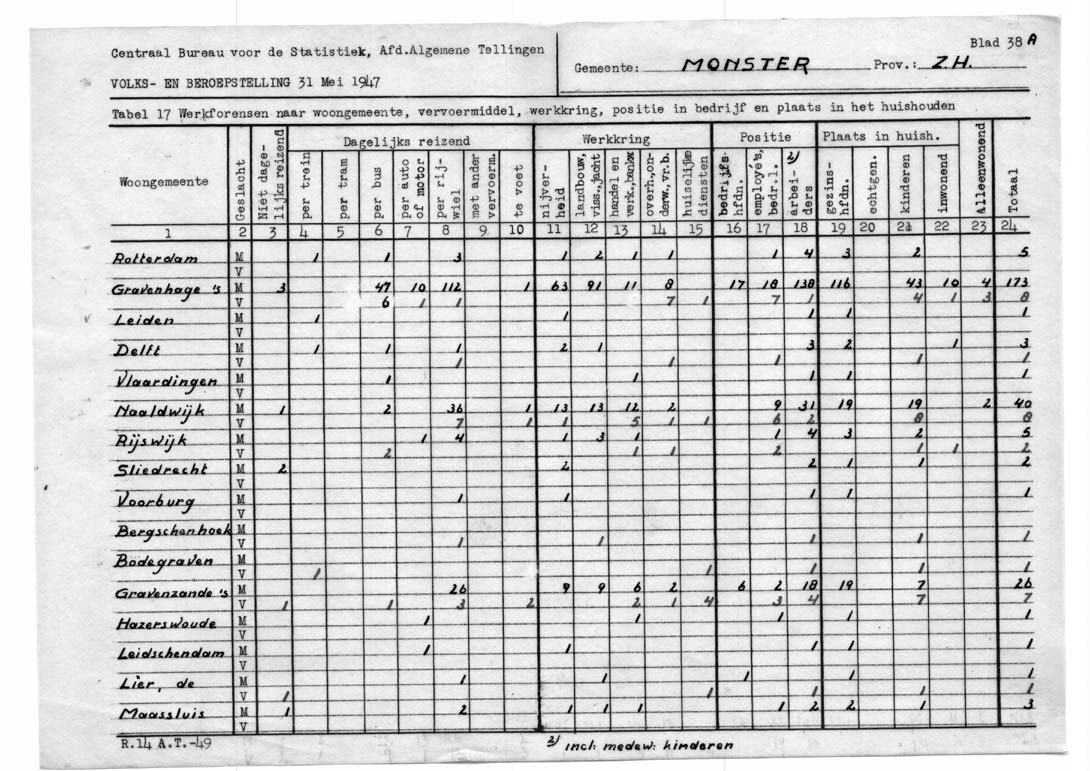 Centraal Bureau voor de Statistiek, Afd.Algemene Tellingen
Blad 38 A
Gemeente: MONSTER Prov.: Z.H.
VOLKS- EN BEROEPSTELLING 31 Mei 1947
Tabel 17 Werkforensen naar woongemeente, vervoermiddel, werkkring, positie in bedrijf en plaats in het huishouden
Woongemeente Geslacht Niet dage-lijks reizend Dagelijks reizend Werkkring Positie Plaats in huish. Alleenwonend Totaal
per trein per tram per bus per auto of motor per rij-wiel met ander vervoerm. te voet nijver-heid landbouw, viss., jacht handel en verk., bankw overh., on-derw., vr.b. huiselijke diensten bedrijfs-hfdn. employé's, bedr.l. 2) arbei-ders gezins-hfdn. echtgen. kinderen inwonend
1 2 3 4 5 6 7 8 9 10 11 12 13 14 15 16 17 18 19 20 21 22 23 24
Rotterdam M 1 1 3 1 2 1 1 1 4 3 2 5
V
Gravenhage 's M 3 47 10 112 1 63 91 11 8 17 18 138 116 43 10 4 173
V 6 1 1 7 1 7 1 4 1 3 8
Leiden M 1 1 1 1 1
V
Delft M 1 1 1 2 1 3 2 1 3
V 1 1 1 1 1
Vlaardingen M 1 1 1 1 1
V
Naaldwijk M 1 2 36 1 13 13 12 2 9 31 19 19 2 40
V 7 1 1 5 1 1 6 2 8 8
Rijswijk M 1 4 1 3 1 1 4 3 2 5
V 2 1 1 2 1 1 2
Sliedrecht M 2 2 2 1 1 2
V
Voorburg M 1 1 1 1 1
V
Bergschenhoek M
V 1 1 1 1 1
Bodegraven M
V 1 1 1 1 1
Gravenzande 's M 26 9 9 6 2 6 2 18 19 7 26
V 1 1 3 2 2 1 4 3 4 7 7
Hazerswoude M 1 1 1 1 1
V
Leidschendam M 1 1 1 1 1
V
Lier, de M 1 1 1 1 1
V 1 1 1 1 1
Maassluis M 1 2 1 1 1 1 2 2 1 3
V
R.14 A.T.-49
2) incl: medew: kinderen